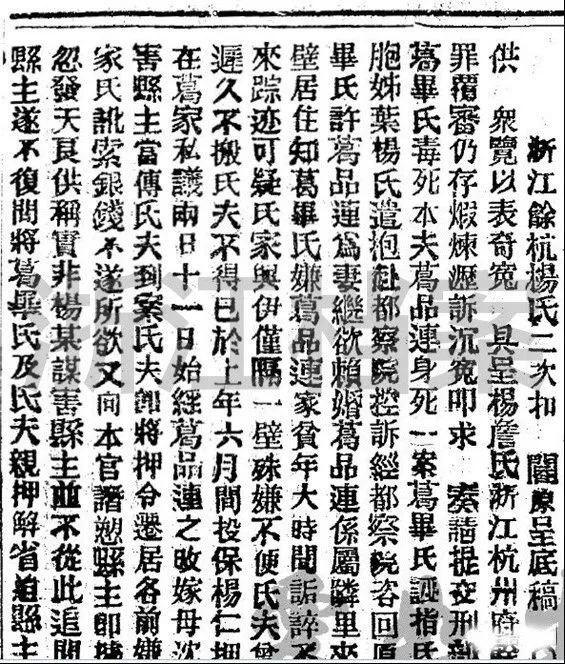 浙江餘杭楊氏二次扣 閽原呈底稿
供 衆覽以表奇寃 具呈楊詹氏浙江杭州府
罪覆審仍存煅煉瀝訴沉寃叩求 奏請提交刑
葛畢氏毒死本夫葛品連身死一案葛畢氏誣指氏
胞姊葉楊氏遣抱赴都察院控訴經都察院咨回原
畢氏許葛品連爲妻繼欲賴婚葛品連係屬隣里來
壁居住知葛畢氏嫌葛品連家貧年大時聞詬誶不
來踪迹可疑氏家與伊僅隔一壁殊嫌不便氏夫曾
遲久不搬氏夫不得已於上年六月間投保楊仁押
在葛家私議兩日十一日始經葛品連之改嫁母沈
害縣主當傳氏夫到案氏夫卽將押令遷居各前嫌
家氏訛索銀錢不遂所欲又向本官譖愬縣主卽
忽發天良供稱實非楊某謀害縣主並不從此追問
縣主遂不復問將葛畢氏及氏夫親押解省迨縣主
浙江档案